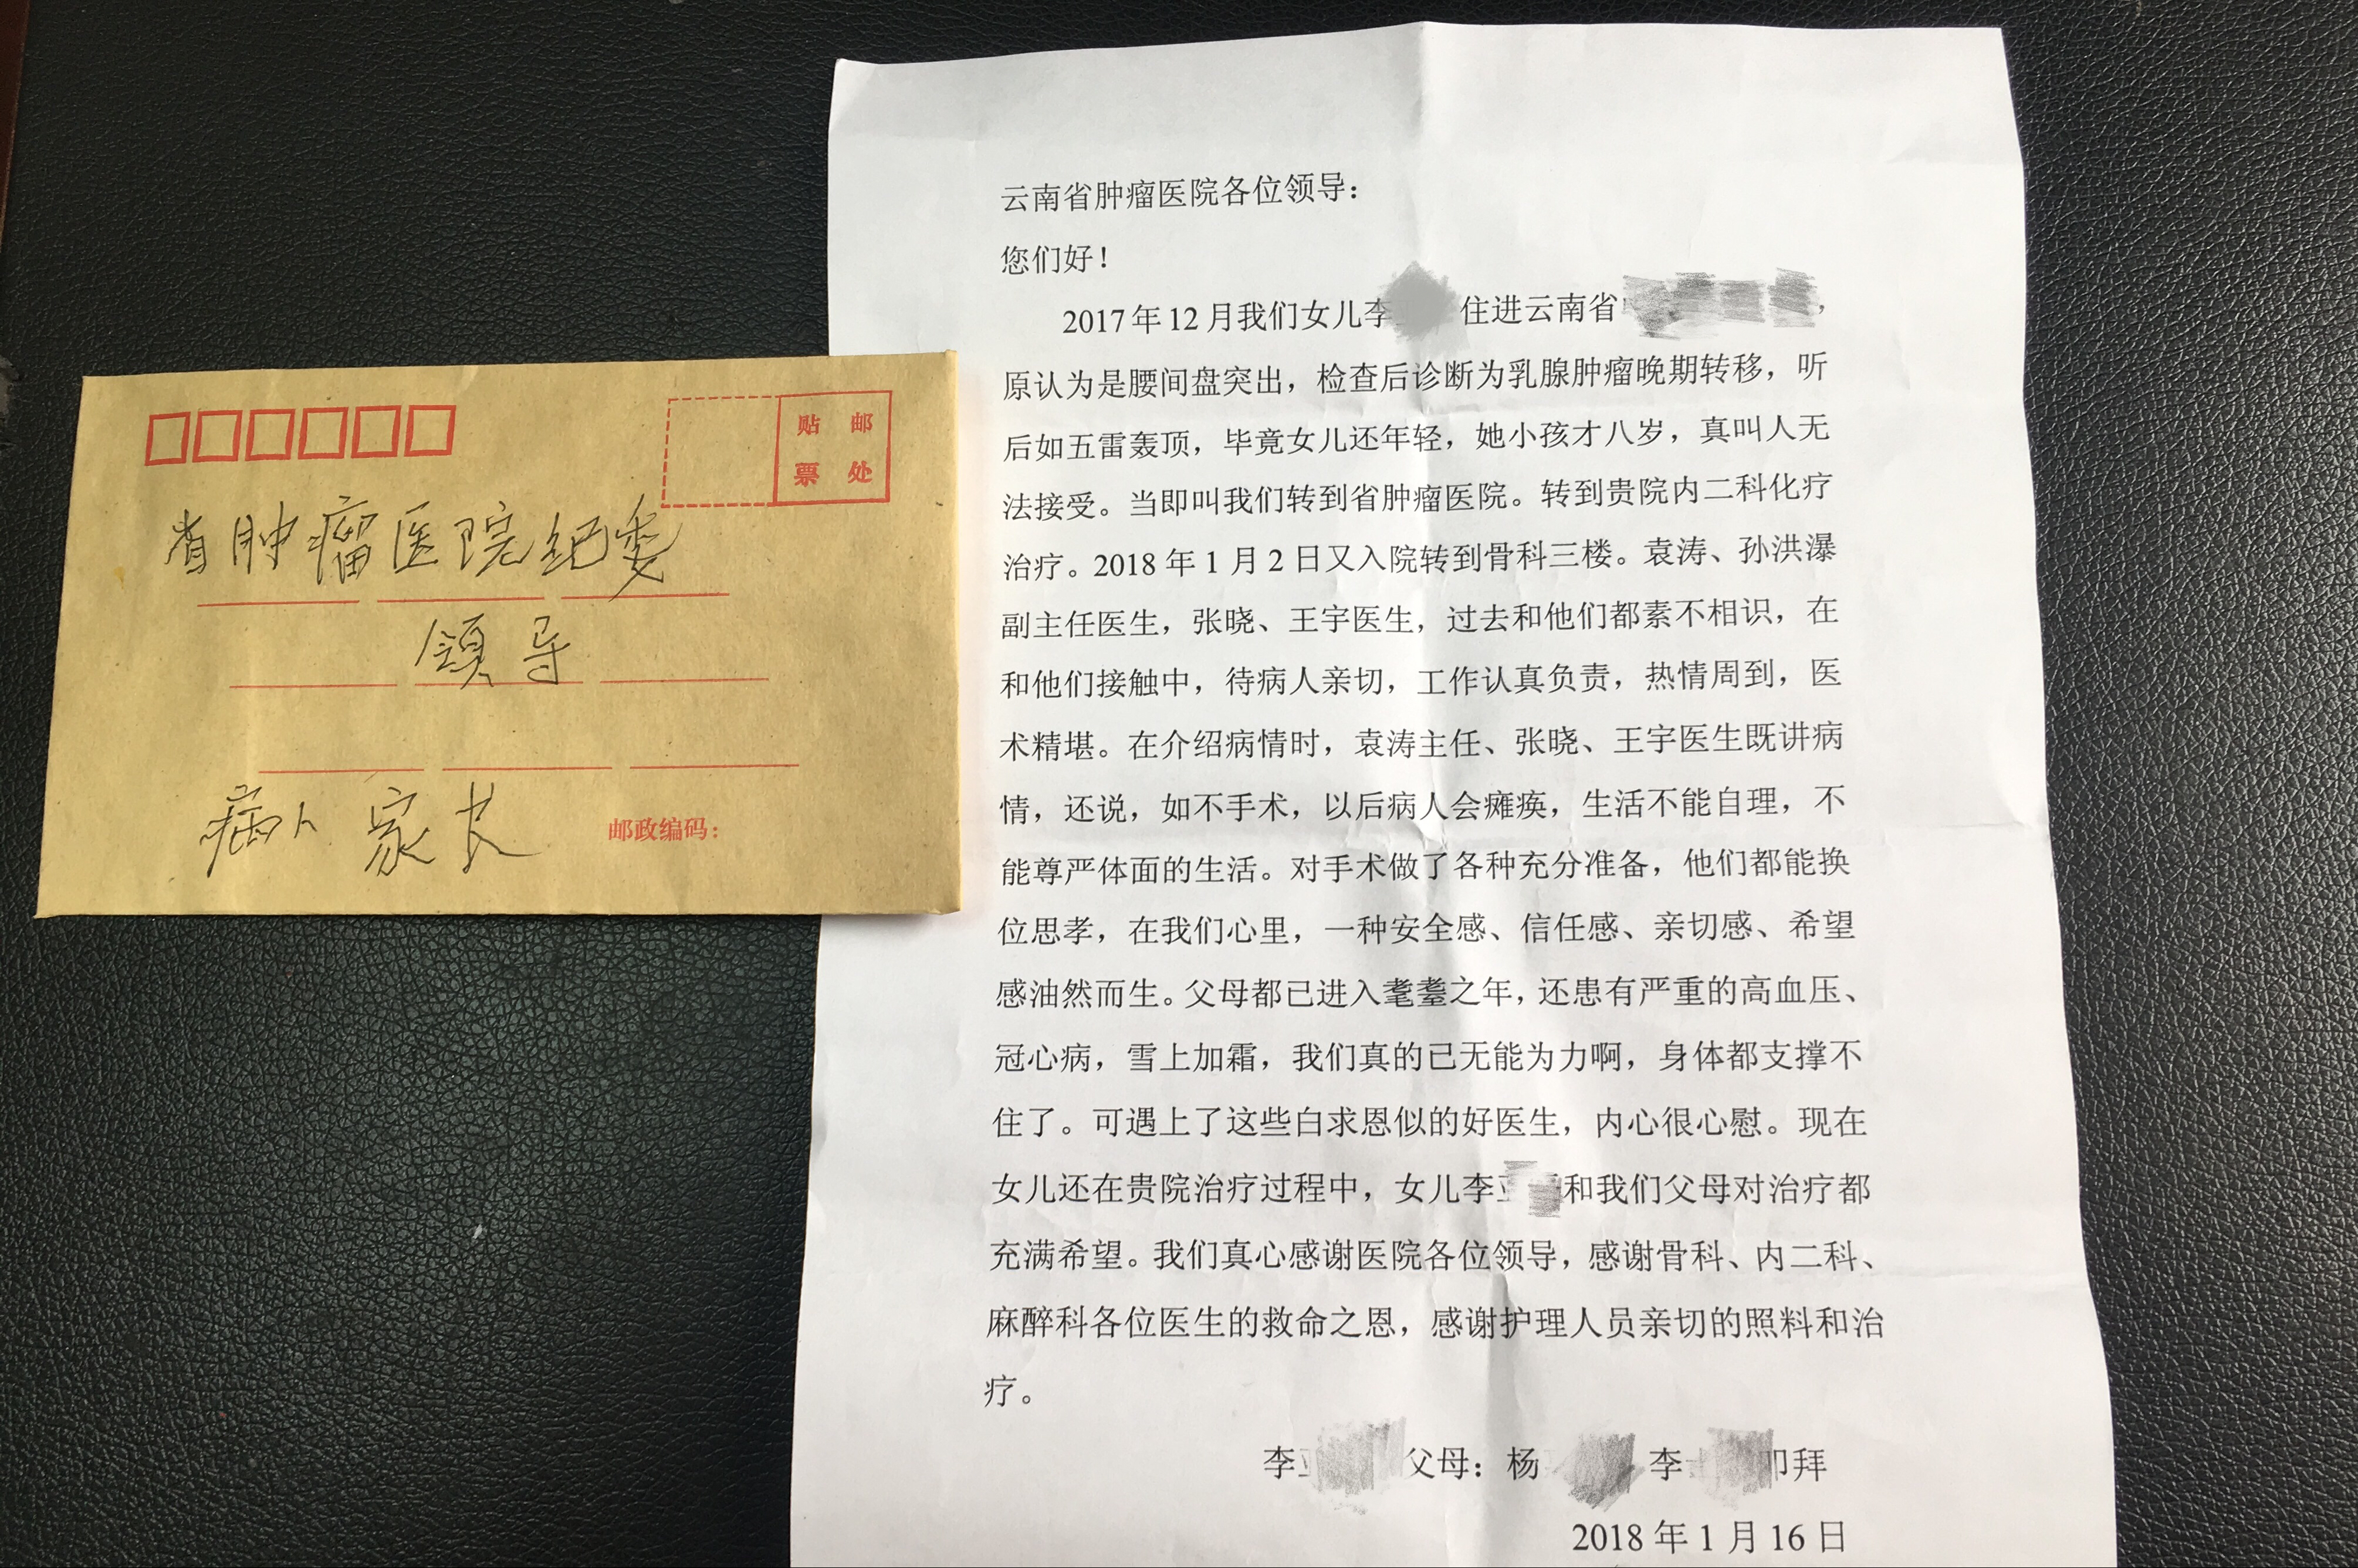 贴 邮
票 处
省肿瘤医院纪委
领导
病人家长
邮政编码：
云南省肿瘤医院各位领导：
您们好！
2017年12月我们女儿李 住进云南省 ，
原认为是腰间盘突出，检查后诊断为乳腺肿瘤晚期转移，听
后如五雷轰顶，毕竟女儿还年轻，她小孩才八岁，真叫人无
法接受。当即叫我们转到省肿瘤医院。转到贵院内二科化疗
治疗。2018年1月2日又入院转到骨科三楼。袁涛、孙洪瀑
副主任医生，张晓、王宇医生，过去和他们都素不相识，在
和他们接触中，待病人亲切，工作认真负责，热情周到，医
术精堪。在介绍病情时，袁涛主任、张晓、王宇医生既讲病
情，还说，如不手术，以后病人会瘫痪，生活不能自理，不
能尊严体面的生活。对手术做了各种充分准备，他们都能换
位思孝，在我们心里，一种安全感、信任感、亲切感、希望
感油然而生。父母都已进入耄耋之年，还患有严重的高血压、
冠心病，雪上加霜，我们真的已无能为力啊，身体都支撑不
住了。可遇上了这些白求恩似的好医生，内心很心慰。现在
女儿还在贵院治疗过程中，女儿李 和我们父母对治疗都
充满希望。我们真心感谢医院各位领导，感谢骨科、内二科、
麻醉科各位医生的救命之恩，感谢护理人员亲切的照料和治
疗。
李 父母：杨 李 叩拜
2018年1月16日